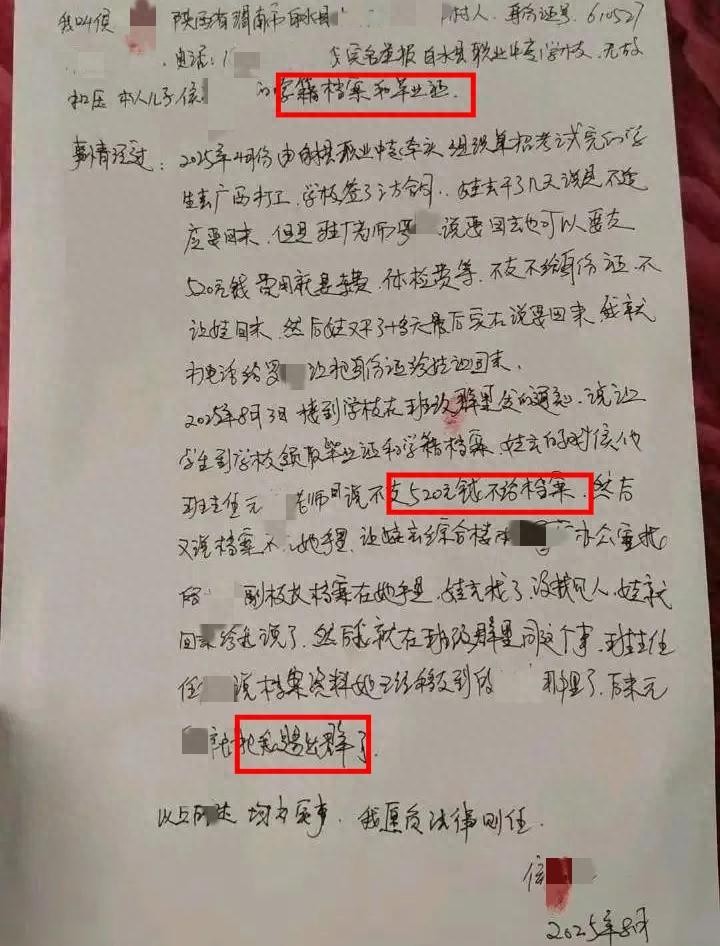 我叫侯 陕西省渭南市白水县 村人、身份证号、610527
电话：1 实名举报白水县职业中专学校、无故
扣压本人儿子侯 的学籍档案和毕业证.
事情经过：2025年4月份由白水县职业中专牵头组织单招考试完的学
生去广西打工，学校签了三方合同，娃去干了几天说是不适
应要回来，但是驻厂老师罗 说要回去也可以要交
520元钱费用就是车费、体检费等，不交不给身份证、不
让娃回来，然后娃又干了十多天最后实在说要回来，我就
打电话给罗 让把身份证给娃让回来.
2025年8月3日接到学校在班级群里发的通知，说让
学生到学校领取毕业证和学籍档案，娃去的时候他
班主任元 老师说不交520元钱不给档案，然后
又说档案不 她手里，让娃去综合楼 办公室找
副校长档案在她手里，娃去找了，没找见人，娃就
回来给我说了，然后我就在班级群里问这个事，班主任
任 说档案资料她已经移交到 那里了，后来元
把我踢出群了.
以上 均为实事，我愿负法律则任.
侯
2025年8月